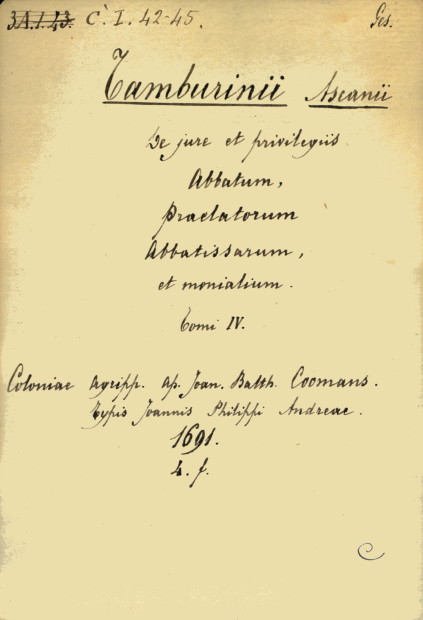 3A.I.43. C. I. 42-45. Ges.
Tamburinii Ascanii
De jure et privilegiis
Abbatum,
Praelatorum
Abbatissarum,
et monialium.
Tomi IV.
Coloniae Agripp. Ap. Joan. Balth. Coomans.
Typis Joannis Philippi Andreae.
1691.
4. f.
C